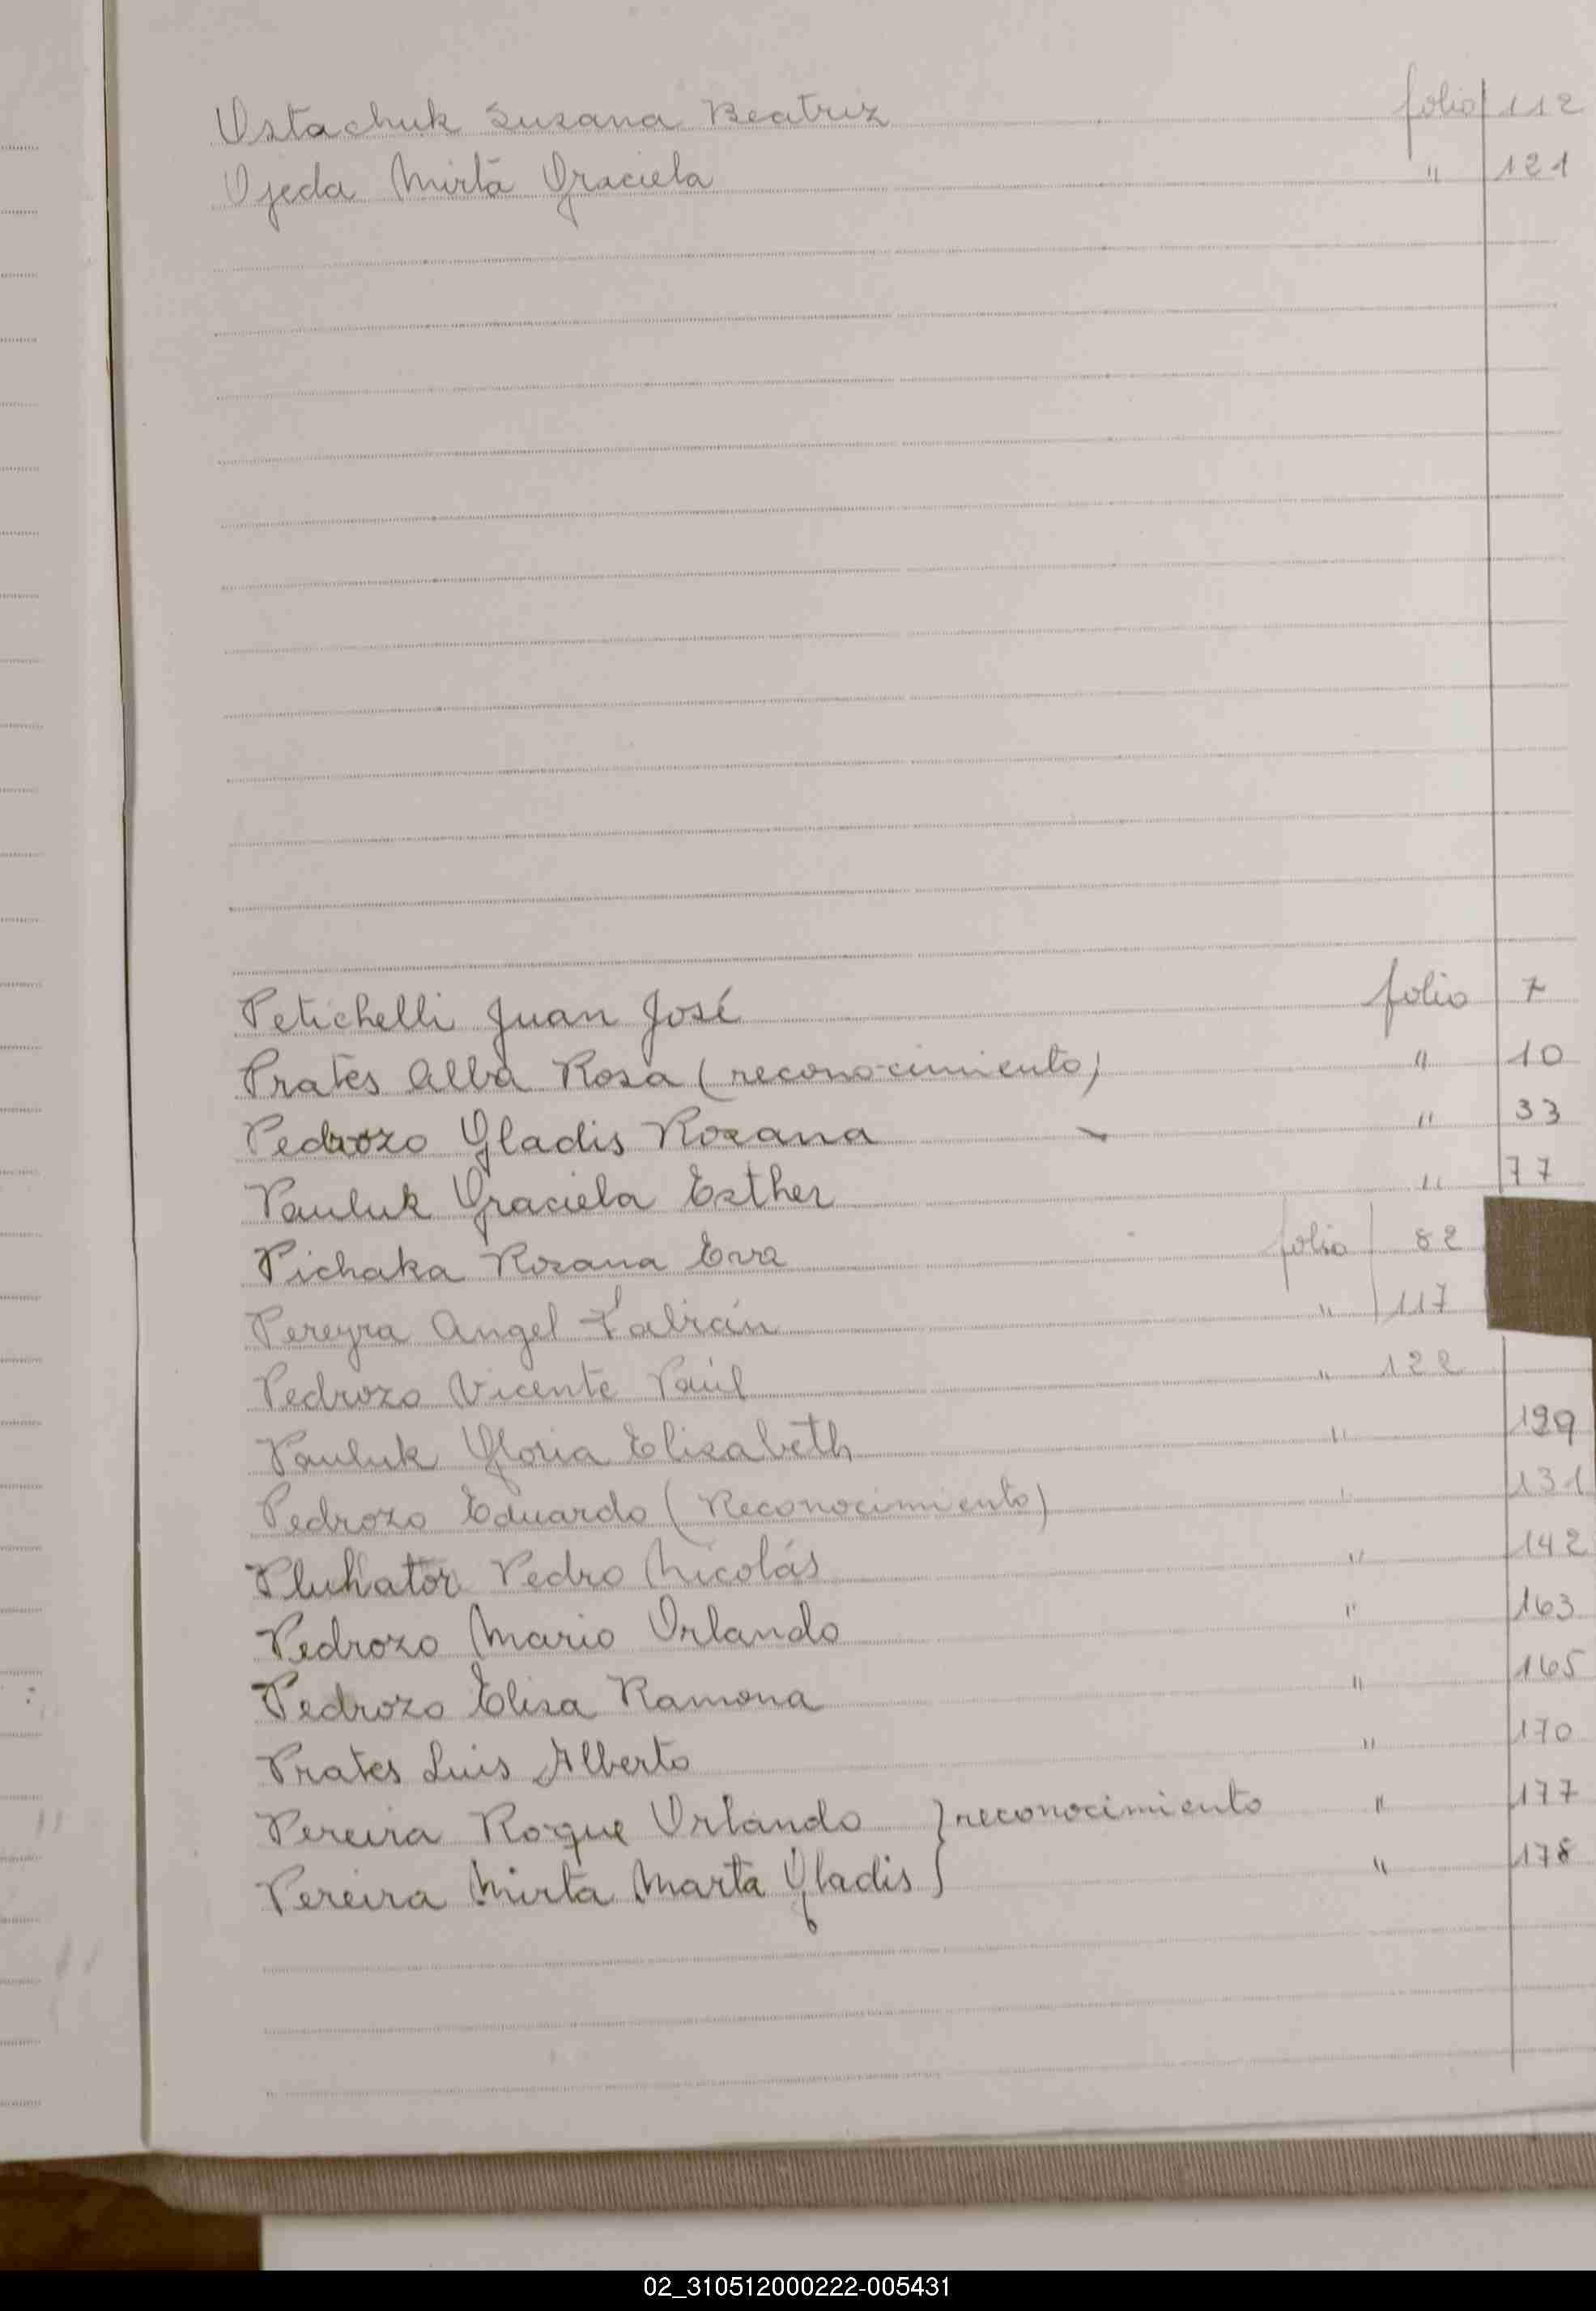 Ostachuk Susana Beatriz folio 112
Ojeda Mirta Graciela " 121
Petichelli Juan José folio 7
Prates Alba Rosa (reconocimiento) " 10
Pedrozo Gladis Rosana " 33
Pauluk Graciela Esther " 77
Pichaka Rosana Eva folio 82
Pereyra Angel Fabián " 117
Pedrozo Vicente Raúl " 122
Pauluk Gloria Elisabeth " 129
Pedrozo Eduardo (Reconocimiento) " 131
Pluhator Pedro Nicolás " 142
Pedrozo Mario Orlando " 163
Pedrozo Elisa Ramona " 165
Prates Luis Alberto " 170
Pereira Roque Orlando } reconocimiento " 177
Pereira Mirta Marta Gladis } " 178
02_310512000222-005431